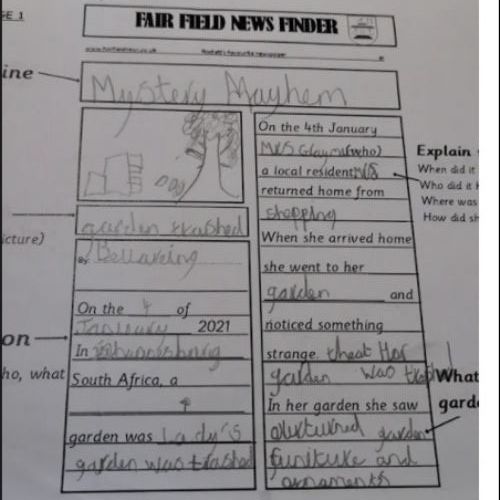 GE 1
FAIR FIELD NEWS FINDER
ine
Mystery Mayhem
icture)
garden trashed
By:
On the 4 of
January 2021
on
In
ho, what
South Africa, a
garden was Lady's
garden was trashed
On the 4th January
Mrs (who)
a local resident
returned home from
shopping
When she arrived home
she went to her
garden and
noticed something
strange. that Her
garden was trashed
In her garden she saw
overturned garden
funiture and
ornaments
Explain
When did it
Who did it h
Where was
How did sh
What
garde